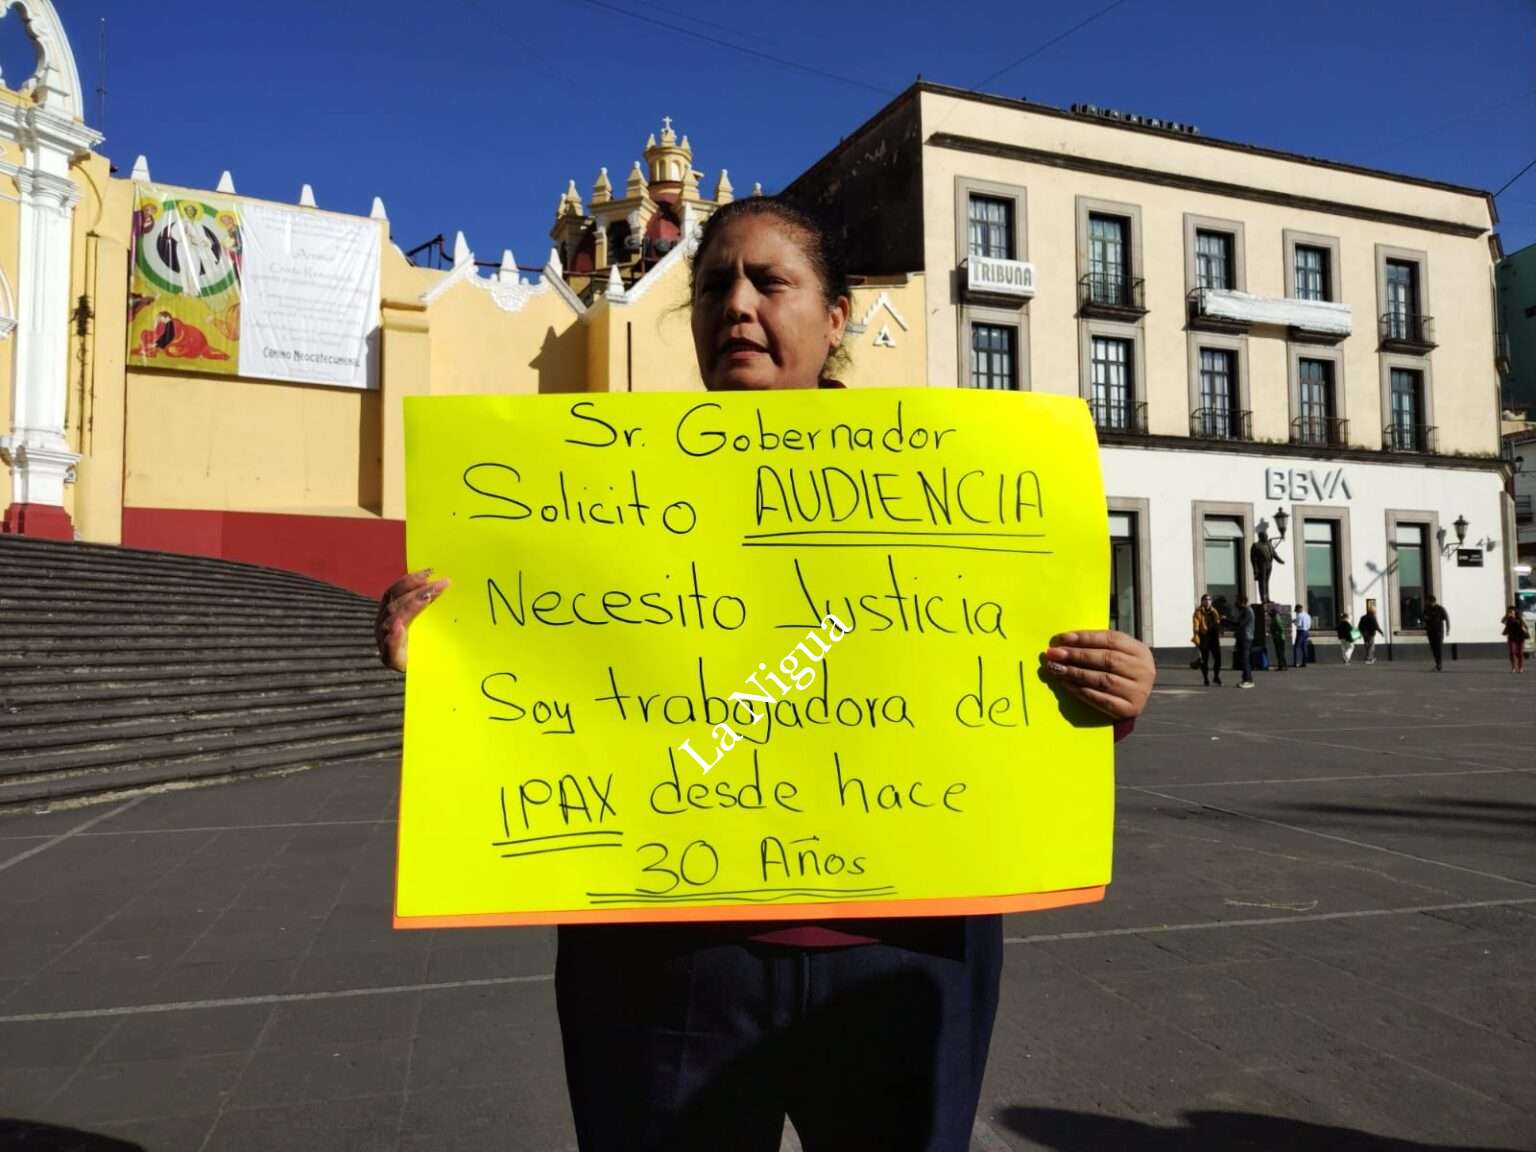 Camino Neocatecumenal
TRIBUNA
BBVA
Sr. Gobernador
Solicito AUDIENCIA
Necesito Justicia
Soy trabajadora del
IPAX desde hace
30 Años
La Nigua